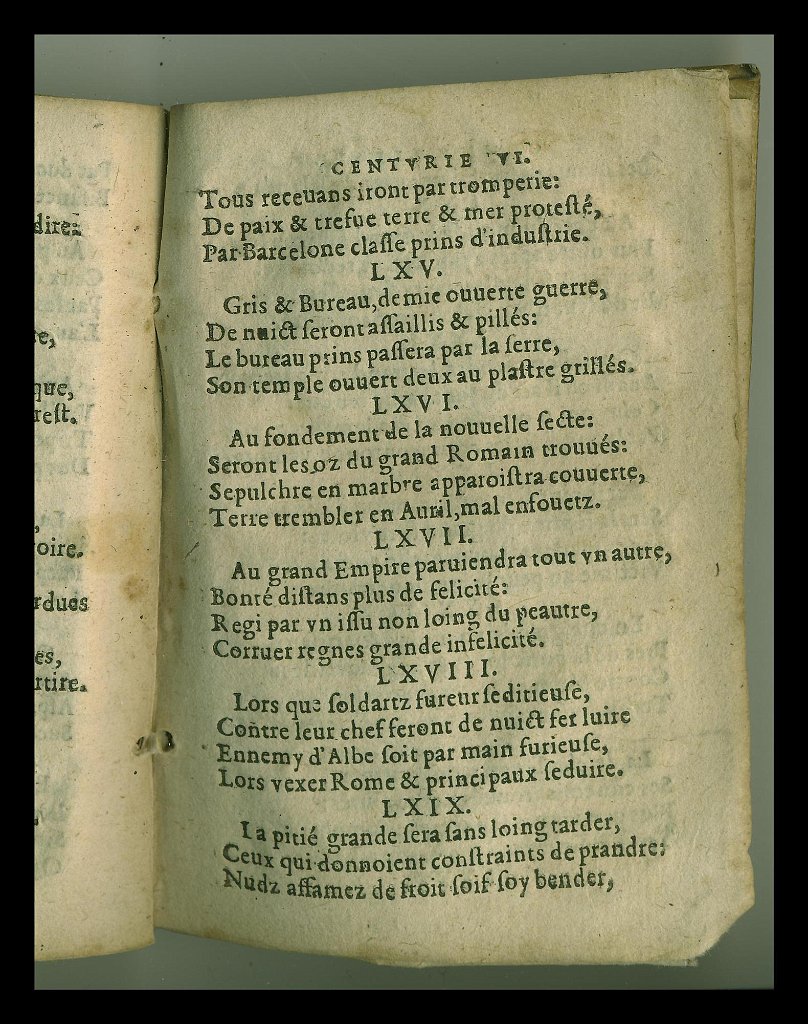 dire:
re,
que,
rest.
,
oire.
rdues
es,
rtire.
CENTVRIE VI.
Tous receuans iront par tromperie:
De paix & trefue terre & mer protesté,
Par Barcelone classe prins d'industrie.
LXV.
Gris & Bureau, demie ouuerte guerre,
De nuict seront assaillis & pillés:
Le bureau prins passera par la serre,
Son temple ouuert deux au plastre grillés.
LXVI.
Au fondement de la nouuelle secte:
Seront les oz du grand Romain trouués:
Sepulchre en marbre apparoistra couuerte,
Terre trembler en Auril, mal enfouetz.
LXVII.
Au grand Empire paruiendra tout vn autre,
Bonté distans plus de felicité:
Regi par vn issu non loing du peautre,
Corruer regnes grande infelicité.
LXVIII.
Lors que soldartz fureur seditieuse,
Contre leur chef feront de nuict fer luire
Ennemy d'Albe soit par main furieuse,
Lors vexer Rome & principaux seduire.
LXIX.
La pitié grande sera sans loing tarder,
Ceux qui donnoient constraints de prandre:
Nudz affamez de froit soif soy bender,